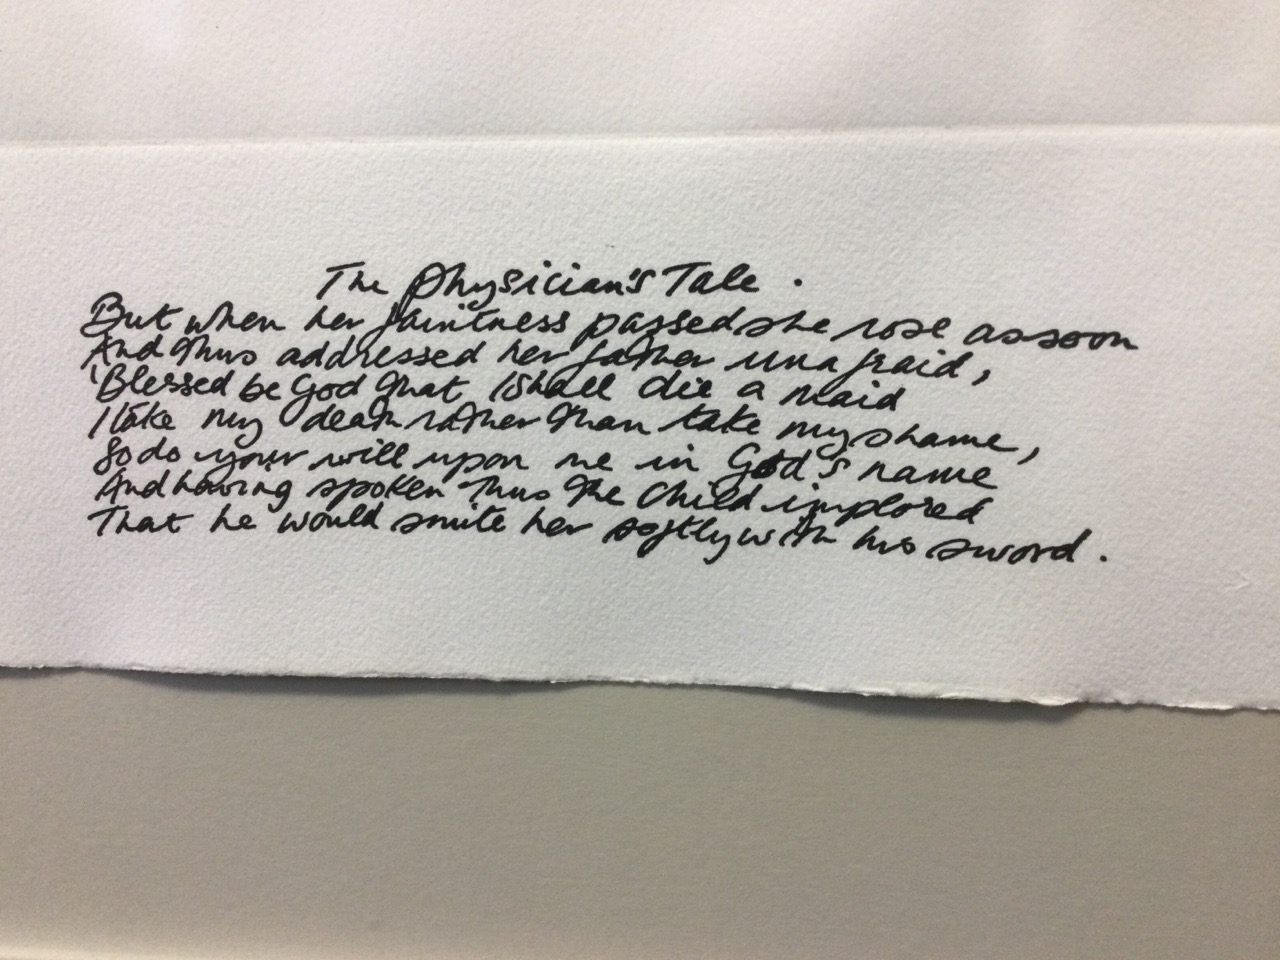 The Physician's Tale.
But when her faintness passed she rose as soon
And thus addressed her father unafraid,
'Blessed be God that I shall die a maid
I take my death rather than take my shame,
So do your will upon me in God's name
And having spoken thus the child implored
That he would smite her softly with his sword.